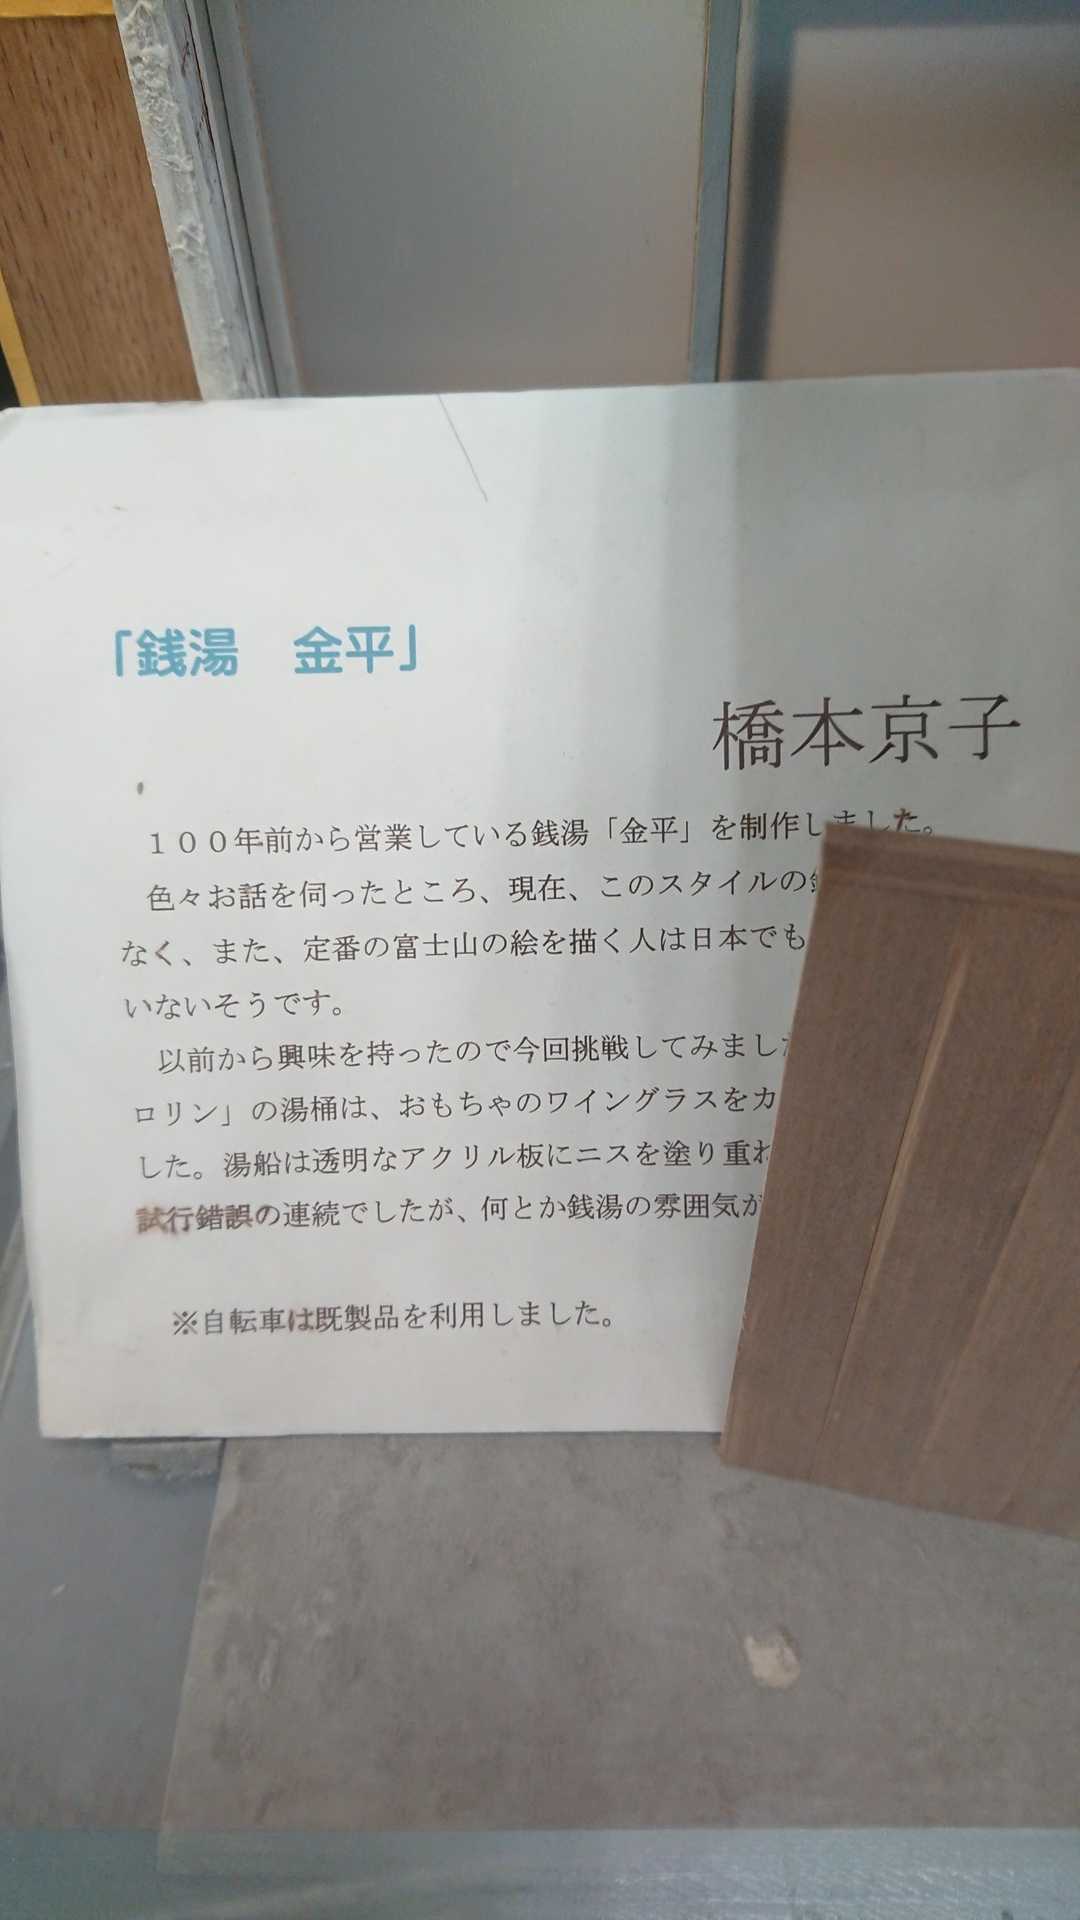 「銭湯　金平」
橋本京子
１００年前から営業している銭湯「金平」を制作しました。
色々お話を伺ったところ、現在、このスタイルの
なく、また、定番の富士山の絵を描く人は日本でも
いないそうです。
以前から興味を持ったので今回挑戦してみまし
ロリン」の湯桶は、おもちゃのワイングラスをカ
した。湯船は透明なアクリル板にニスを塗り重
試行錯誤の連続でしたが、何とか銭湯の雰囲気が
※自転車は既製品を利用しました。